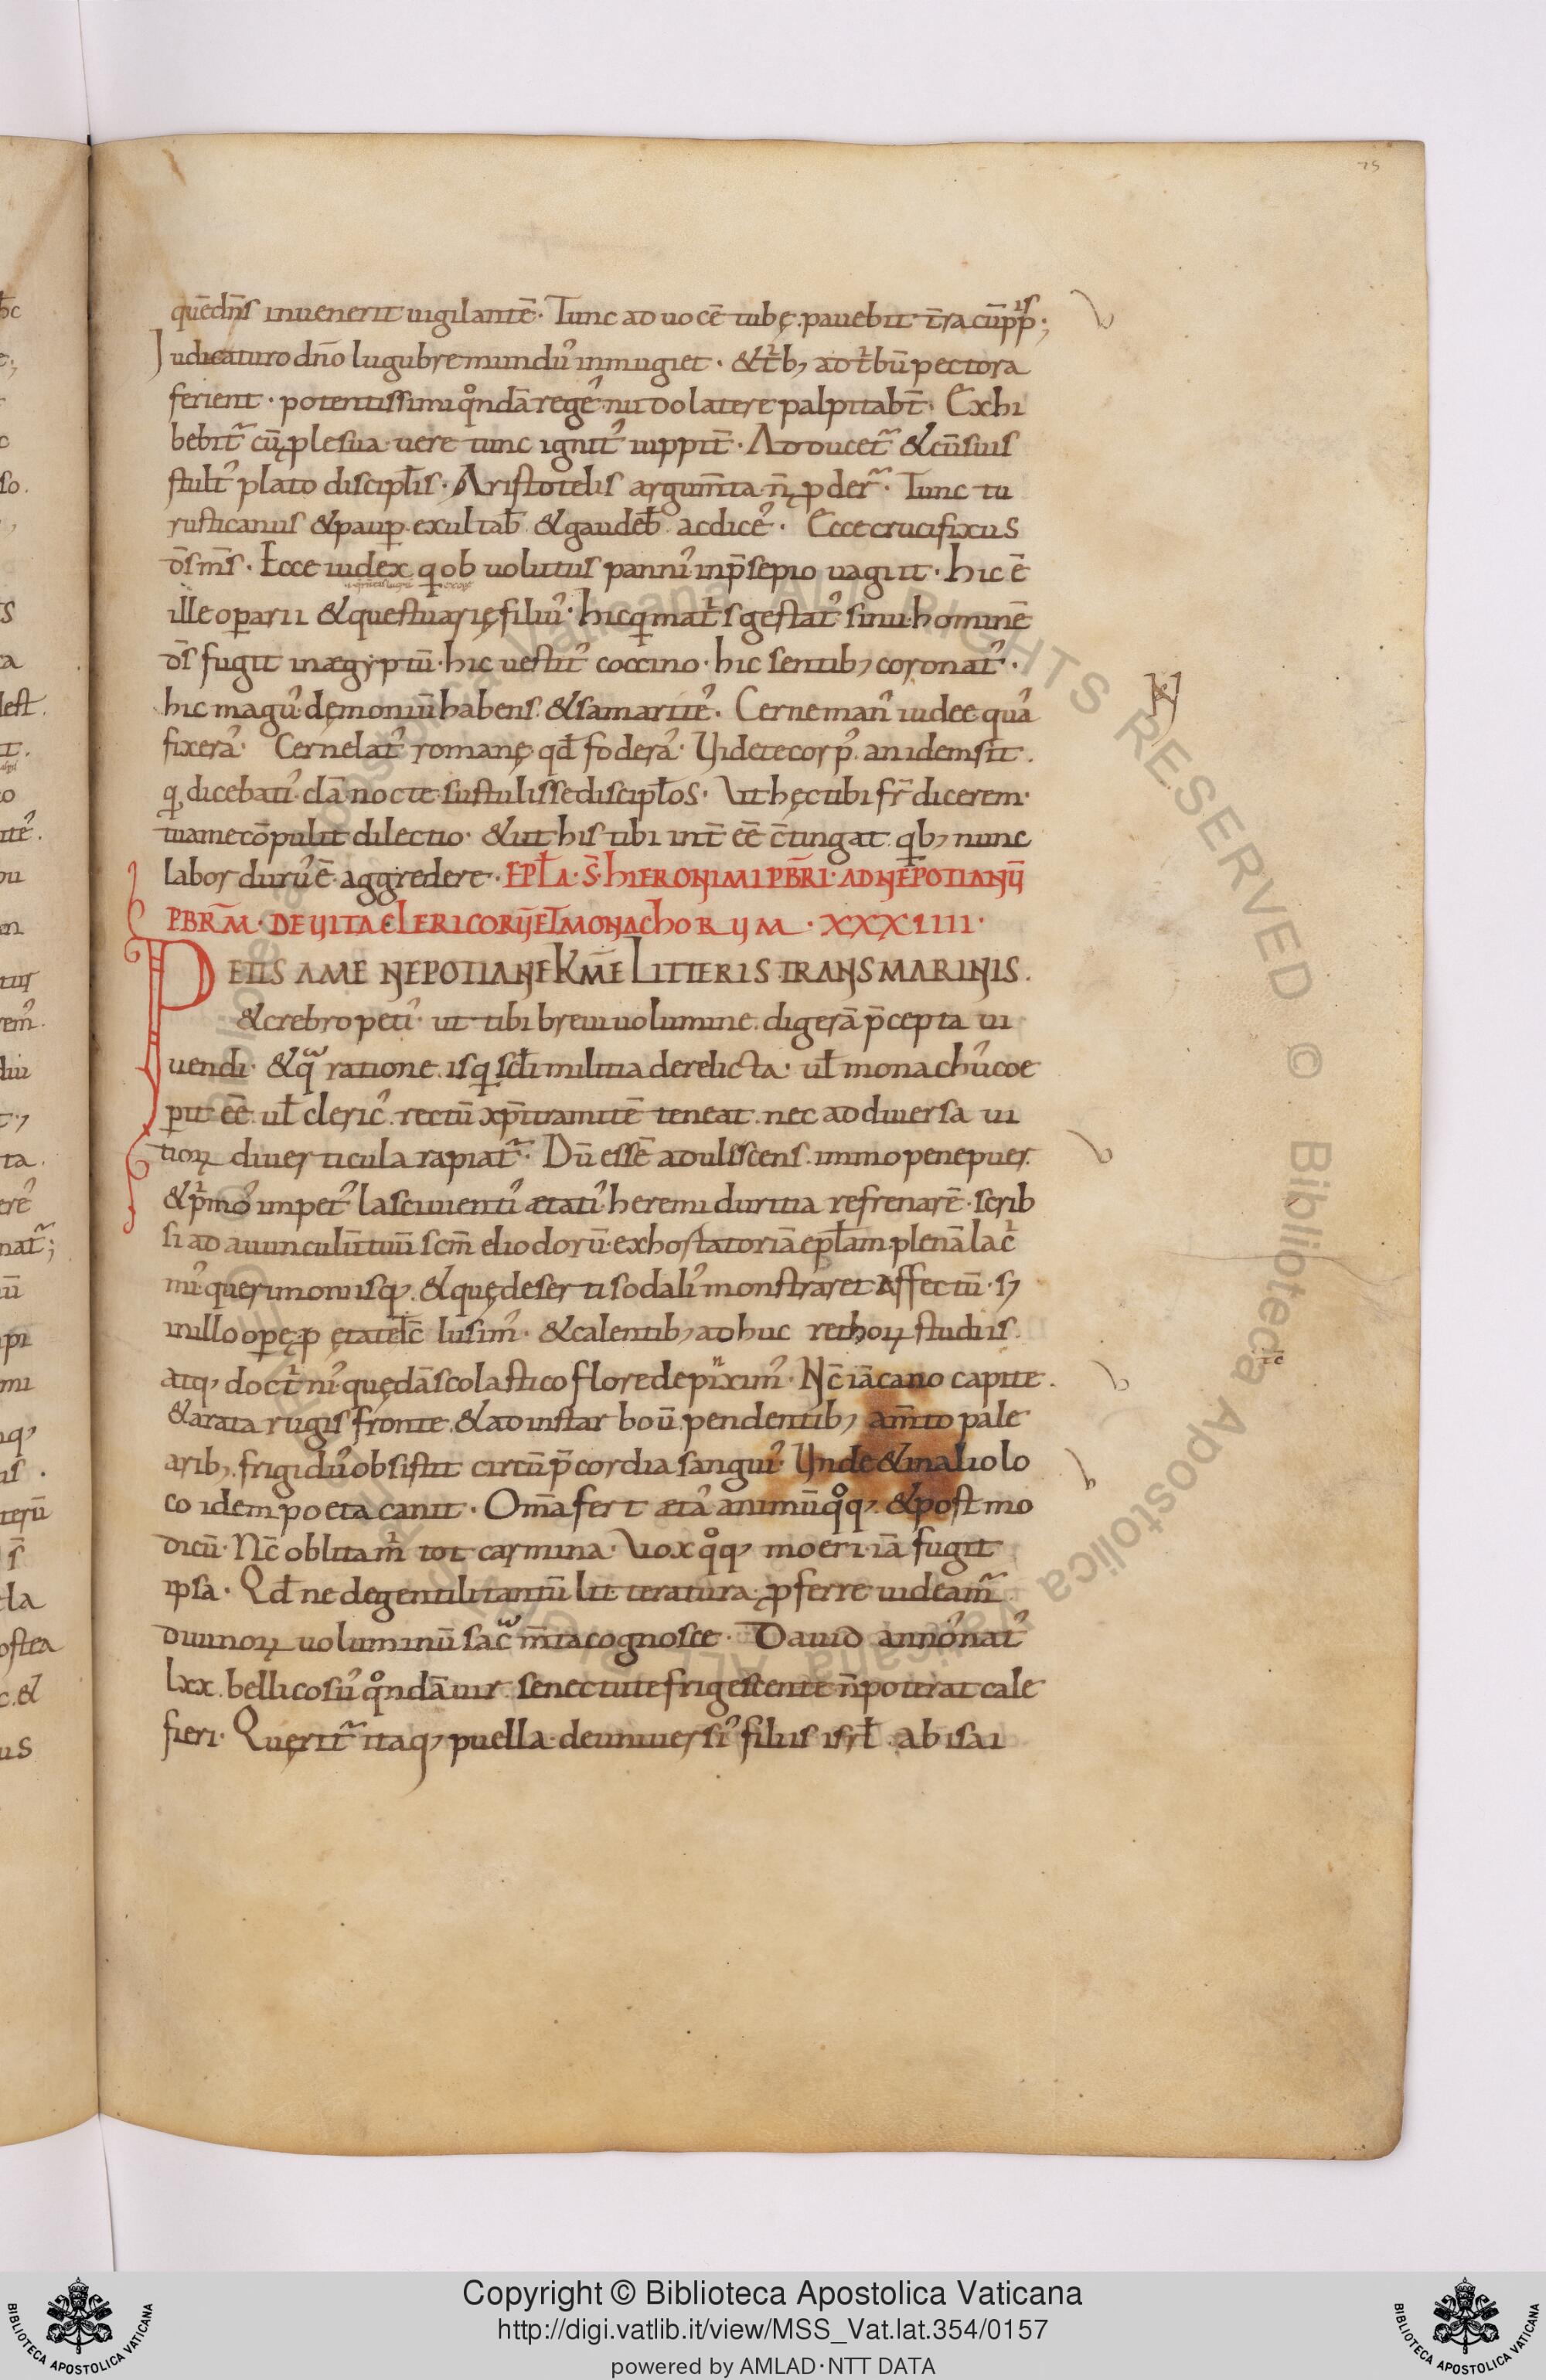 75
quēdn̄s inuenerit uigilantē. Tunc ad uocē tubę. pauebit t̄ra cū pp̄is;
Iudicaturo dn̄o lugubre mundu᾽ inmugiet. & t͛ib; ad t͛ibū pectora
ferient. potentissimi qͦndā rege᾽ nudo latere palpitabt̄. Exhi
bebit᷑ cū ꝓle sua uere tunc ignit᾽ iuppit̄. Adducet᷑ & cū suis
stult᾽ plato discipłis. Aristotelis argum̄ta n̄ ꝓder᷑. Tunc tu
rusticanus & paup̱ exultab̄ & gaudeb̄ ac dice᾽. Ecce crucifixus
d̄s m̄s. Ecce iudex q̱ obuolutus panni᾽ in p̄sepio uagiit. hic ē
ille op̱arii & questuarię filiu᾽. hic q̱ mat͛s gestat᾽ sinu hominē
d̄s fugit in ægyptū. hic uestit᾽ coccino. hic sentib; coronat᾽.
hic magu᾽ dęmoniū habens & samarite᾽. Cerne man᾽ iudee qua᾽
fixera᾽. Cerne lat᾽ romanę qd̄ fodera᾽. Videte corp᾽ an idem sit.
q̱ dicebati᾽ clā nocte sustulisse discipłos. Ut hęc tibi fr̄ dicerem.
tua me cōpulit dilectio. & ut his tibi int̄ee c̄tingat. q̱b; nunc
labor duru᾽ ē. aggredere. EPŁA. S̄. HIERONIMI PBR̄I. AD NEPOTIANŪ
PBR̄M. DE VITA CLERICORŪ ET MONACHORUM. XXXIIII.
PETIS A ME NEPOTIANE KM̄E LITTERIS TRANSMARINIS.
& crebro peti᾽. ut tibi breui uolumine. digerā p̄cepta ui
uendi. & qͣ ratione. is q̱ scłi militia derelicta. uł monachu᾽ coe
pit ēē. uł cleric᾽. rectū xp̄i tramitē teneat. nec ad diuersa ui
tioꝝ diuerticula rapiat᷑. Dū essē adulescens. immo pene puer.
& p͛mo᾽ impet᾽ lasciuienti᾽ ætati᾽ heremi duritia refrenarē. scrib
si ad auunculū tuū sc̄m eliodorū. exhortatoriā epłam. plenā lac͛
mi᾽ querimoniisq;. & quę deserti sodali᾽ monstraret affectū. s;
in illo op̱e ꝓ ętate tc̄ lusim᾽. & calentib; adhuc rethoꝝ studiis
atq; doct͛ni᾽ quędā scolastico flore depinxim᾽. Nc̄ iā cano capite.
& arata rugis fronte. & ad instar boū pendentib; am̄to pale
arib;. frigidu᾽ obsistit circū p̄cordia sangui᾽. Unde & in alio lo
co idem poeta canit. Om̄a fert æta᾽ animū qͦq;. & post mo
dicū. Nc̄ oblita m͛ tot carmina. Uox qͦq; moeri iā fugit
ipsa. Qd̄ ne de gentili tantū litteratura. ꝓferre uideam᷑
diuinoꝝ uoluminū sac͛m̄ta cognosce. Dauid anno᾽ nat᾽
lxx. bellicosu᾽ qͦndā uir. senectute frigescente n̄ poterat cale
fieri. Quęrit᷑ itaq; puella. de uniuersi᾽ filiis isrł. abisai
Copyright © Biblioteca Apostolica Vaticana
http://digi.vatlib.it/view/MSS_Vat.lat.354/0157
powered by AMLAD·NTT DATA
BIBLIOTECA APOSTOLICA VATICANA
BIBLIOTECA APOSTOLICA VATICANA